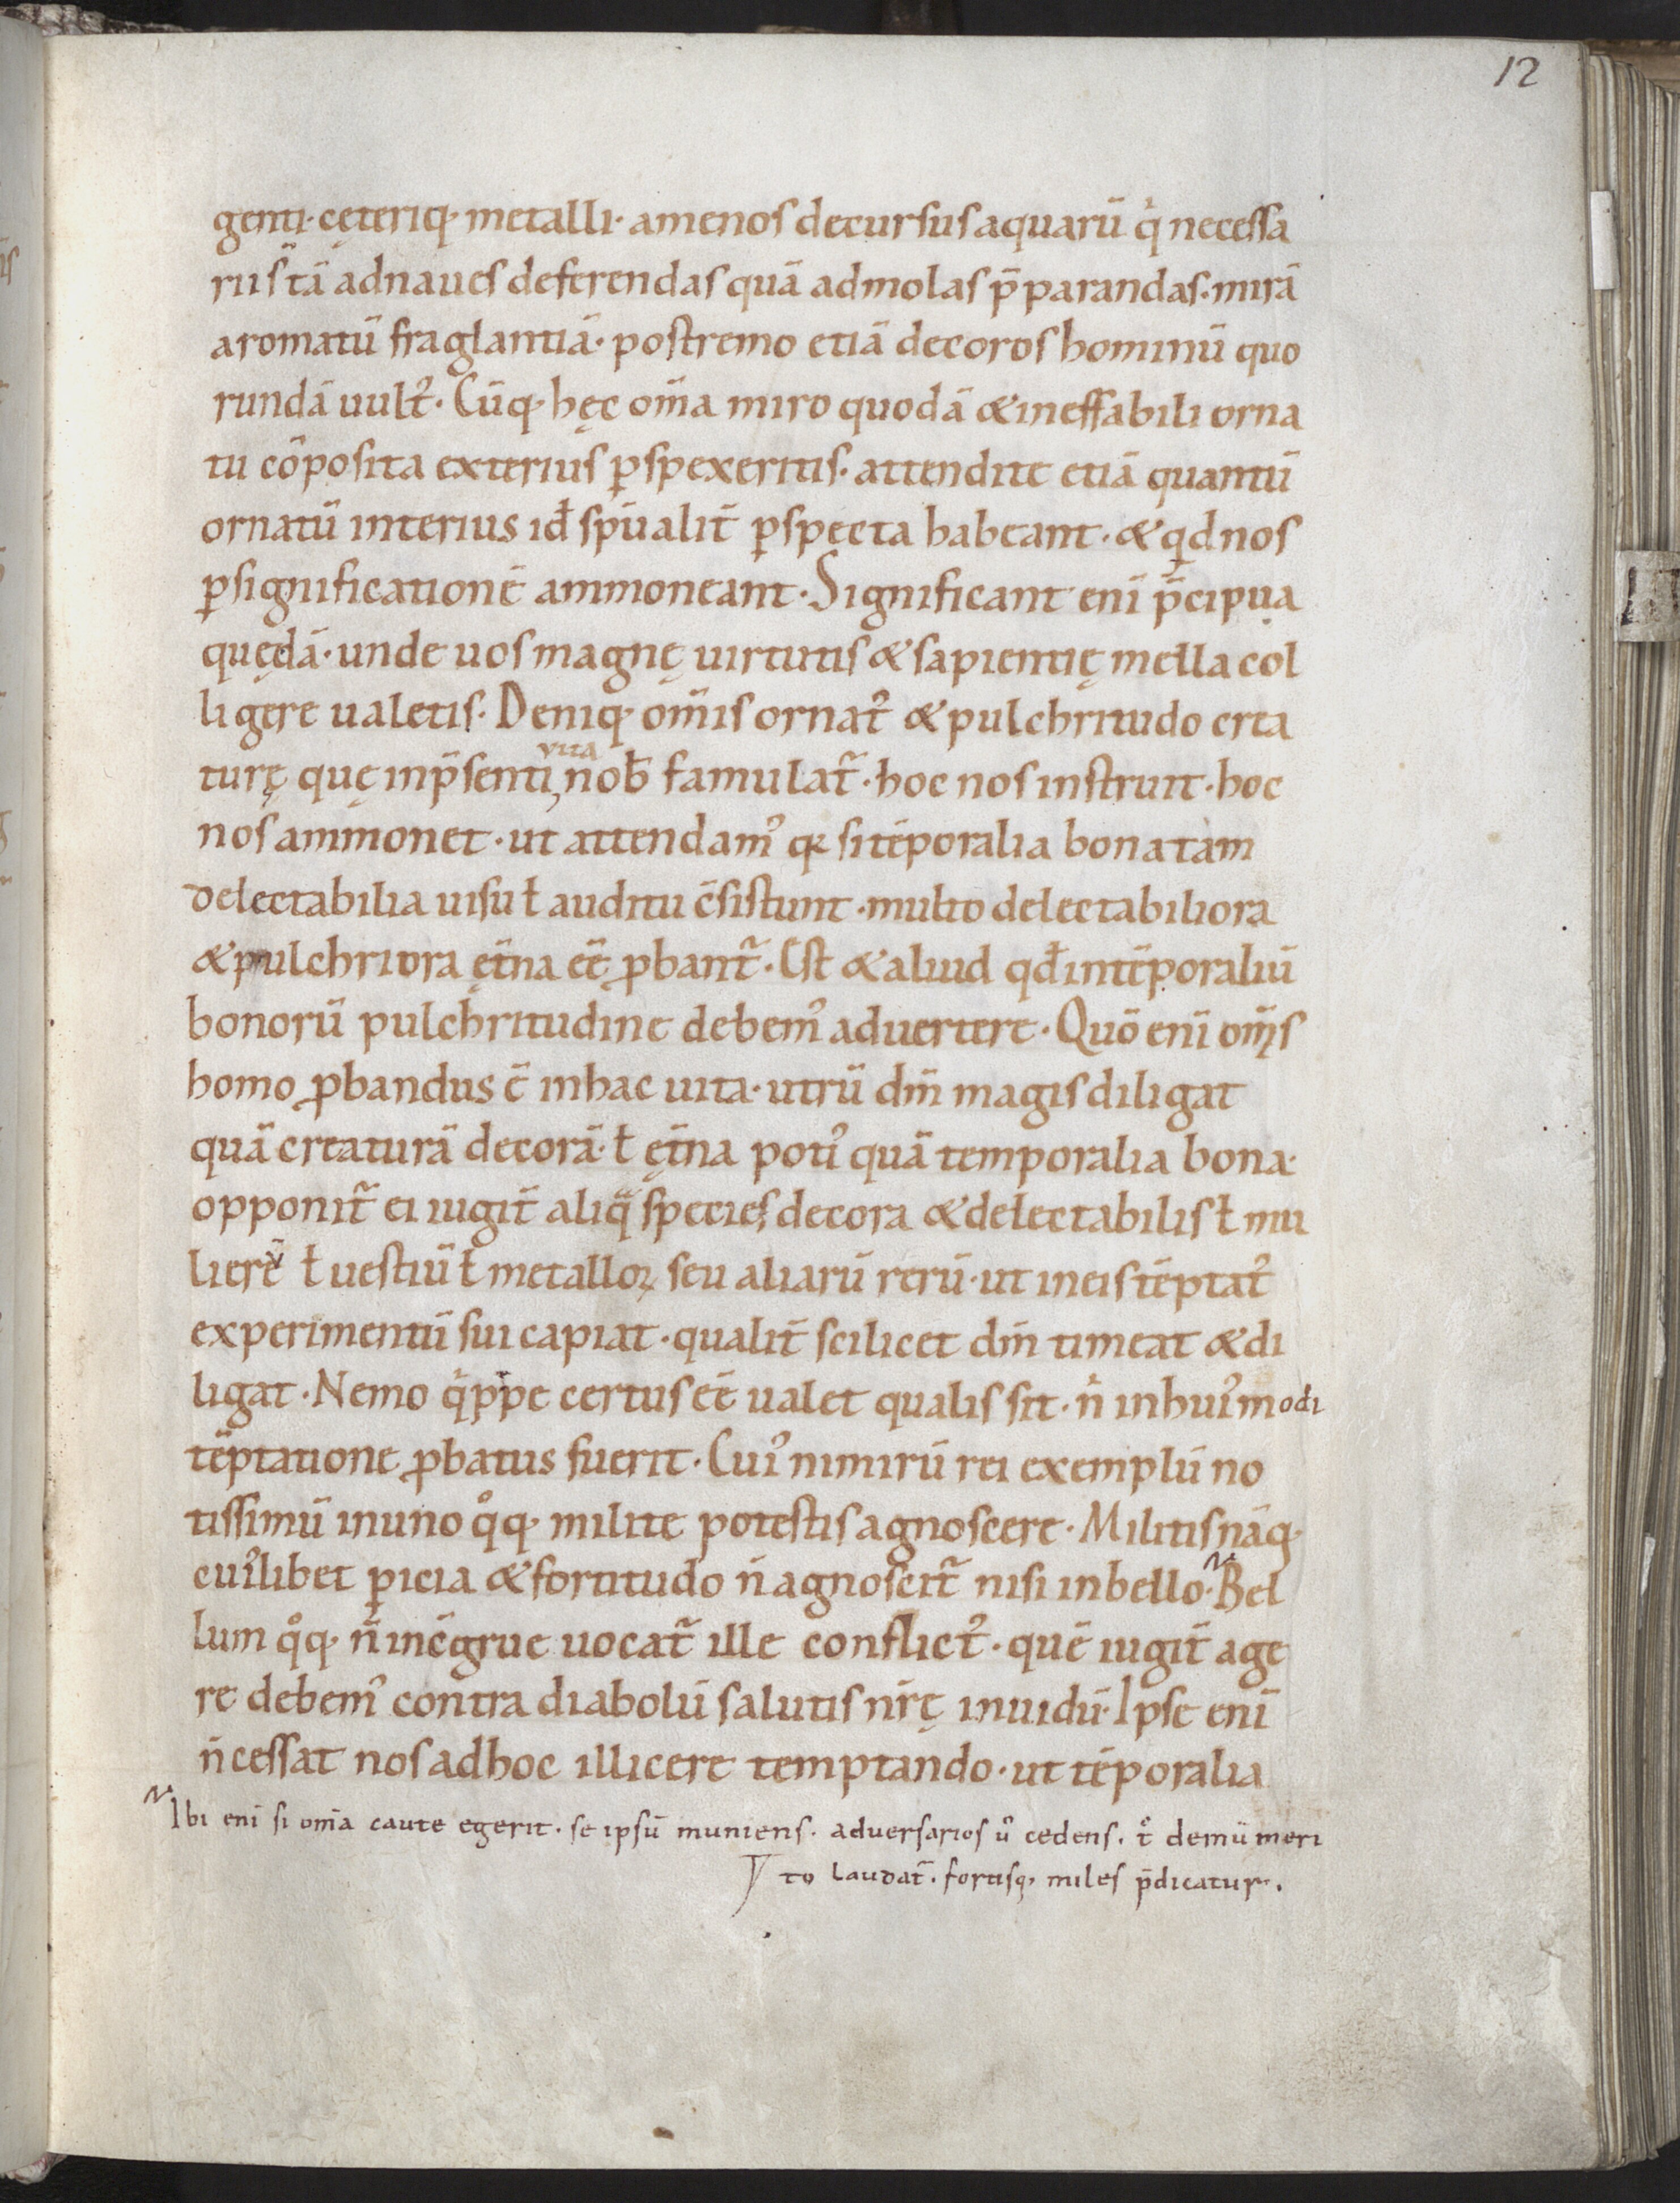 12
genti· cęteriq· metalli· amenos decursus aquarū q̇ necessa
rii s̄ tā ad naues deferendas quā ad molas p̄parandas· mirā
aromatū fraglantiā· postremo etiā decoros hominū quo
rundā uult᷒· Cūq· hęc om̄a miro quodā & ineffabili orna
tu cōposita exterius ꝑspexeritis· attendite etiā quantū
ornatū interius id̄ sp̄ualit̄ ꝑspecta habeant· & qd nos
ꝑ significationē ammoneant· Significant enī p̄cipua
quędā· unde uos magnę uirtutis & sapientię mella col
ligere ualetis· Deniq· om̄is ornat᷒ & pulchritudo crea
vita
turę quę in p̄senti, nob̄ famulat̄· hoc nos instruit· hoc
nos ammonet· ut attendam᷒ qꝛ si tēporalia bona tam
delectabilia uisu ł auditu c̄sistunt· multo delectabiliora
& pulchriora ęt̄na eē ꝓbant̄· Est & aliud qd̄ in tēporaliū
bonorū pulchritudine debem᷒ aduertere· Quō enī om̄s
homo ꝓbandus ē in hac uita· utrū dm̄ magis diligat
quā creaturā decorā· ł ęt̄na poti᷒ quā temporalia bona·
opponit̄ ei iugit̄ aliq̄ species decora & delectabilis ł mu
lierū ł uestiū ł metalloꝝ seu aliarū rerū· ut in eis tēptat᷒
experimentū sui capiat· qualit̄ scilicet dm̄ timeat & di
ligat· Nemo q̇ppe certus eē ualet qualis sit· n̄ in hui᷒modi
tēptatione ꝓbatus fuerit· Cui᷒ nimirū rei exemplū no
tissimū in uno q̊q· milite potestis agnoscere· Militis nāq·
cui᷒libet ꝑicia & fortitudo n̄ agnoscit̄ nisi in bello· Bel
lum q̊q· n̄ incgrue uocat̄ ille conflict᷒· quē iugit̄ age
re debem᷒ contra diabolū salutis nr̄ę inuidū· Ipse enī
n̄ cessat nos ad hoc illicere temptando· ut tēporalia
Ibi enī si om̄a caute egerit· se ipsū muniens· aduersarios ů cedens· t̊ demū meri
to laudat̄· fortisq· miles p̄dicatur·